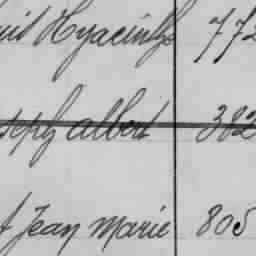 Hyacinthe 772
albert 382
Jean Marie 805